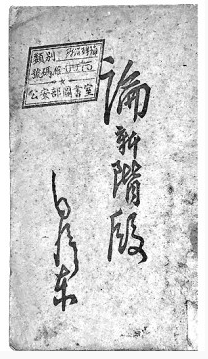 論新階段
毛澤東
類別
號碼
公安部圖書室